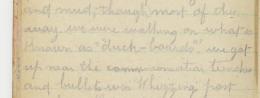 and mud, though most of the
away we were walking on what is
known as "duck-boards" we got
up near the communication trenches
and bullets were "whizzing" past